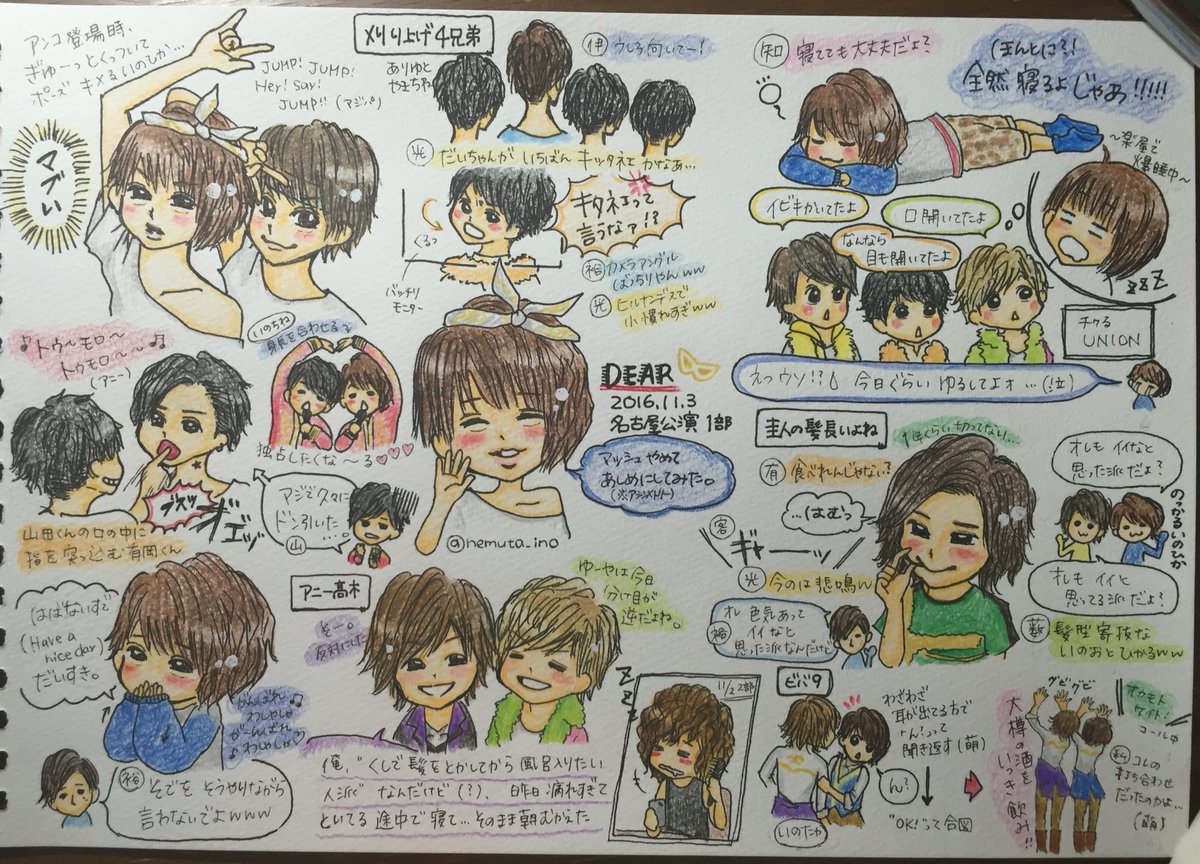 アンコ登場時、
ぎゅーっとくっついて
ポーズ キメるいのひか…
JUMP! JUMP!
Hey! Say!
JUMP!! (アジンパ)
マブい
刈り上げ4兄弟
ありゆと
やまちね
伊 うしろ向いてー!
光 だいちゃんが いちばん キッタネェ かなぁ…
くるっ
キタネェって
言うなァ!?
バッチリ
モニター
裕 カメラアングル
ばっちりやんww
光 ヒルナンデスで
小慣れすぎww
知 寝てても大丈夫だよ?
ほんとに?!
全然寝るよじゃあ!!!!!
〜楽屋で
爆睡中〜
イビキかいてたよ
口開いてたよ
なんなら
目も開いてたよ
ZZZ
チクる
UNION
えっウソ!? 今日ぐらい ゆるしてよォ…(泣)
♪トゥ〜モロ〜
トゥモロ〜〜♫
(アニー)
いのちね
身長を合わせる
独占したくな〜る♡♡♡
ブスッ
オ゛エッ
山田くんの口の中に
指を突っ込む有岡くん
マジで久々に
ドン引いた…
山
DEAR
2016.11.3
名古屋公演1部
アッシュやめて
あしめにしてみた。
(※アシンメトリー)
@nemuta_ino
圭人の髪長いよね
1年くらい切ってない…
有 食べれんじゃない?
…(はむっ
客
ギャーッ
光 今のは悲鳴w
裕 オレ 色気あって
イイなと
思った派なんだけど
オレも イイなと
思った派だよ?
のっかるいのひか
オレも イイと
思ってる派だよ?
薮 髪型寄抜な
いのおとひかるww
はばないすで
(Have a
nice day)
だいすき。
がんばれ
わしゃしゃ
がーんばれ
わしゃしゃ♡
裕 そでを そうやりながら
言わないでよwww
アニー高木
そー。
反対にした
ゆーやは今日
分け目が
逆だよね。
俺、くしで髪をとかしてから風呂入りたい
人派 なんだけど(?)、昨日 疲れすぎて
といてる 途中で寝て…そのまま朝むかえた
ZZZ
11/2 2部
ビバ9
わざわざ
耳が出てる方で
ん?って
聞き返す(萌)
ん?
"OK!"って合図
いのたか
グビグビ
大樽の酒を
いっき飲み!!
オカモト
ケイト!
コール中
コレの
打ち合わせ
だったのかよ…
(萌)